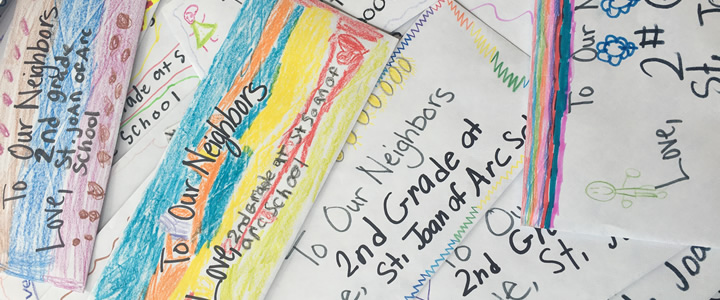 To Our Neighbors
2nd gradde
Love, St. JOAN of Arc
School
ade at S
School
To Our Neighbors
Love, 2nd Grade at St Joan of
arc School
To Our Neighbors
2nd Grade at
St. Joan of Arc Sc
To Our N
2 #
Love, St. J
To Ou
2nd Gr
St. Joa